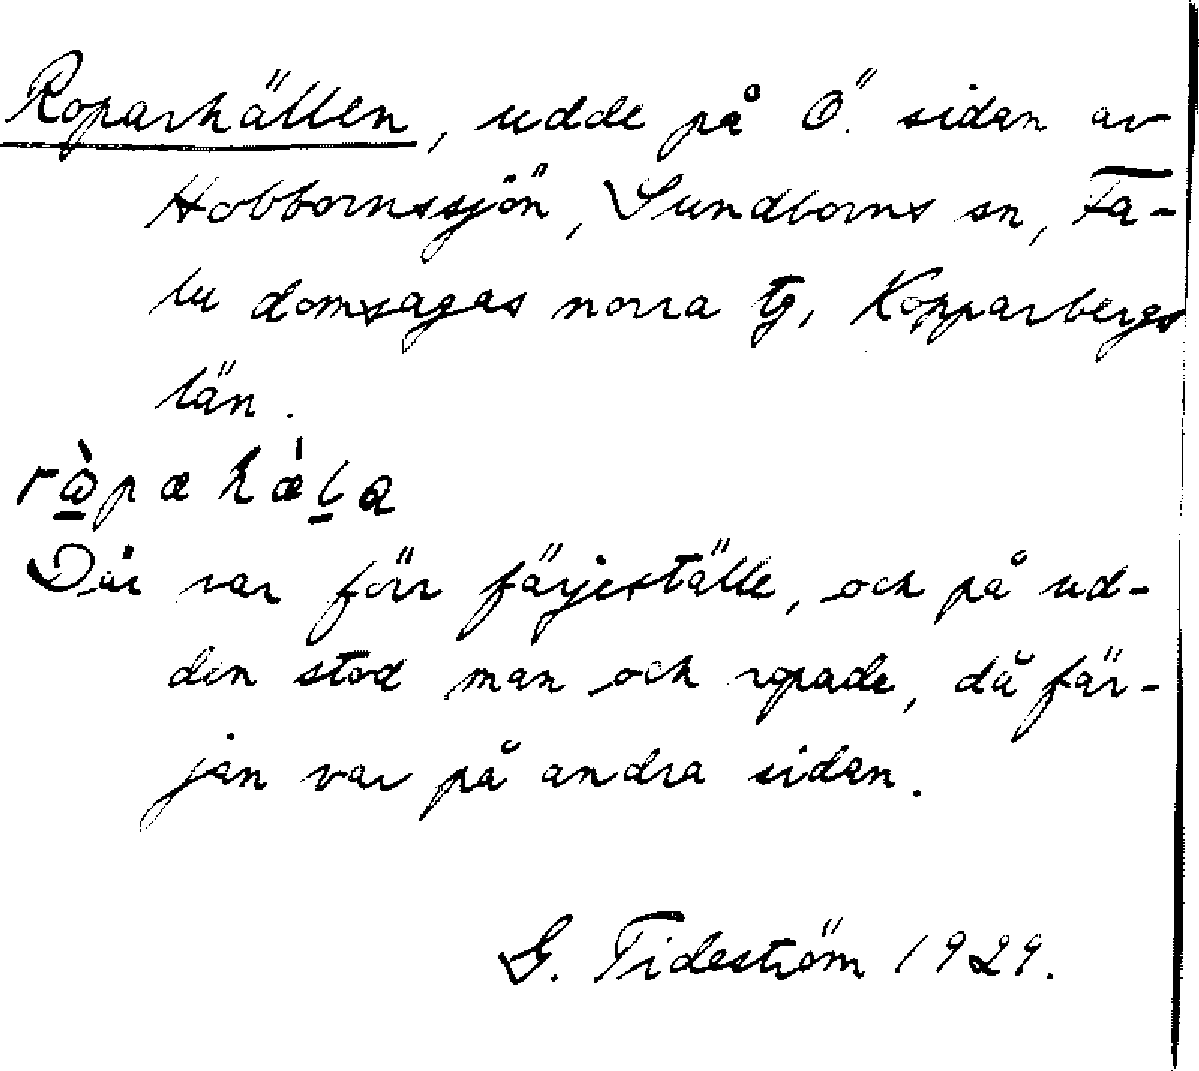 Roparhällen, udde på Ö. sidan av
Hobbornssjön, Sundborns sn, Fa-
lu domsagas norra tg, Kopparbergs
län.
Där var förr färjeställe, och på ud-
den stod man och ropade, då fär-
jan var på andra sidan.
G. Tideström 1929.